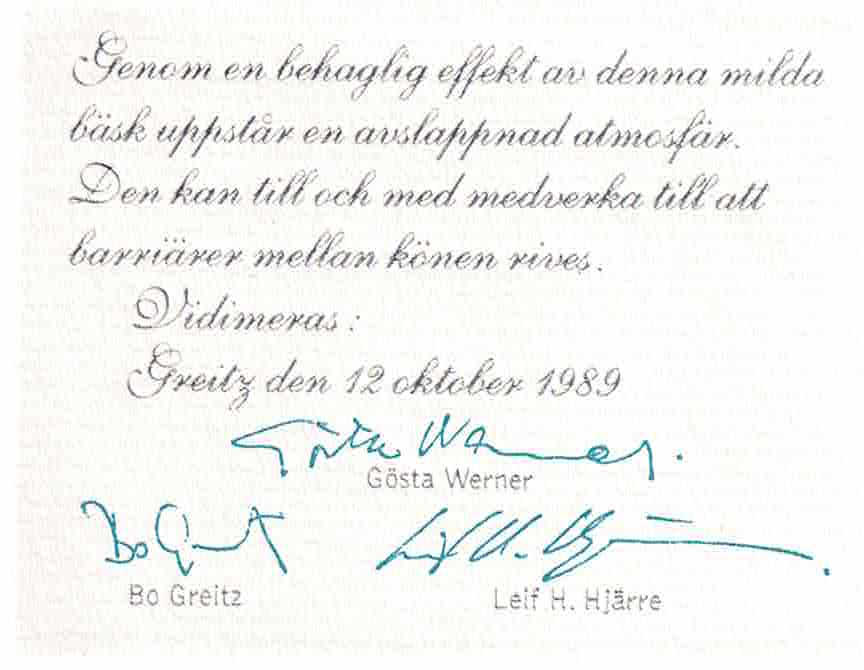 Genom en behaglig effekt av denna milda
bäsk uppstår en avslappnad atmosfär.
Den kan till och med medverka till att
barriärer mellan könen rives.
Vidimeras:
Greitz den 12 oktober 1989
Gösta Werner.
Gösta Werner
Bo Greitz
Leif H. Hjärre.
Bo Greitz
Leif H. Hjärre